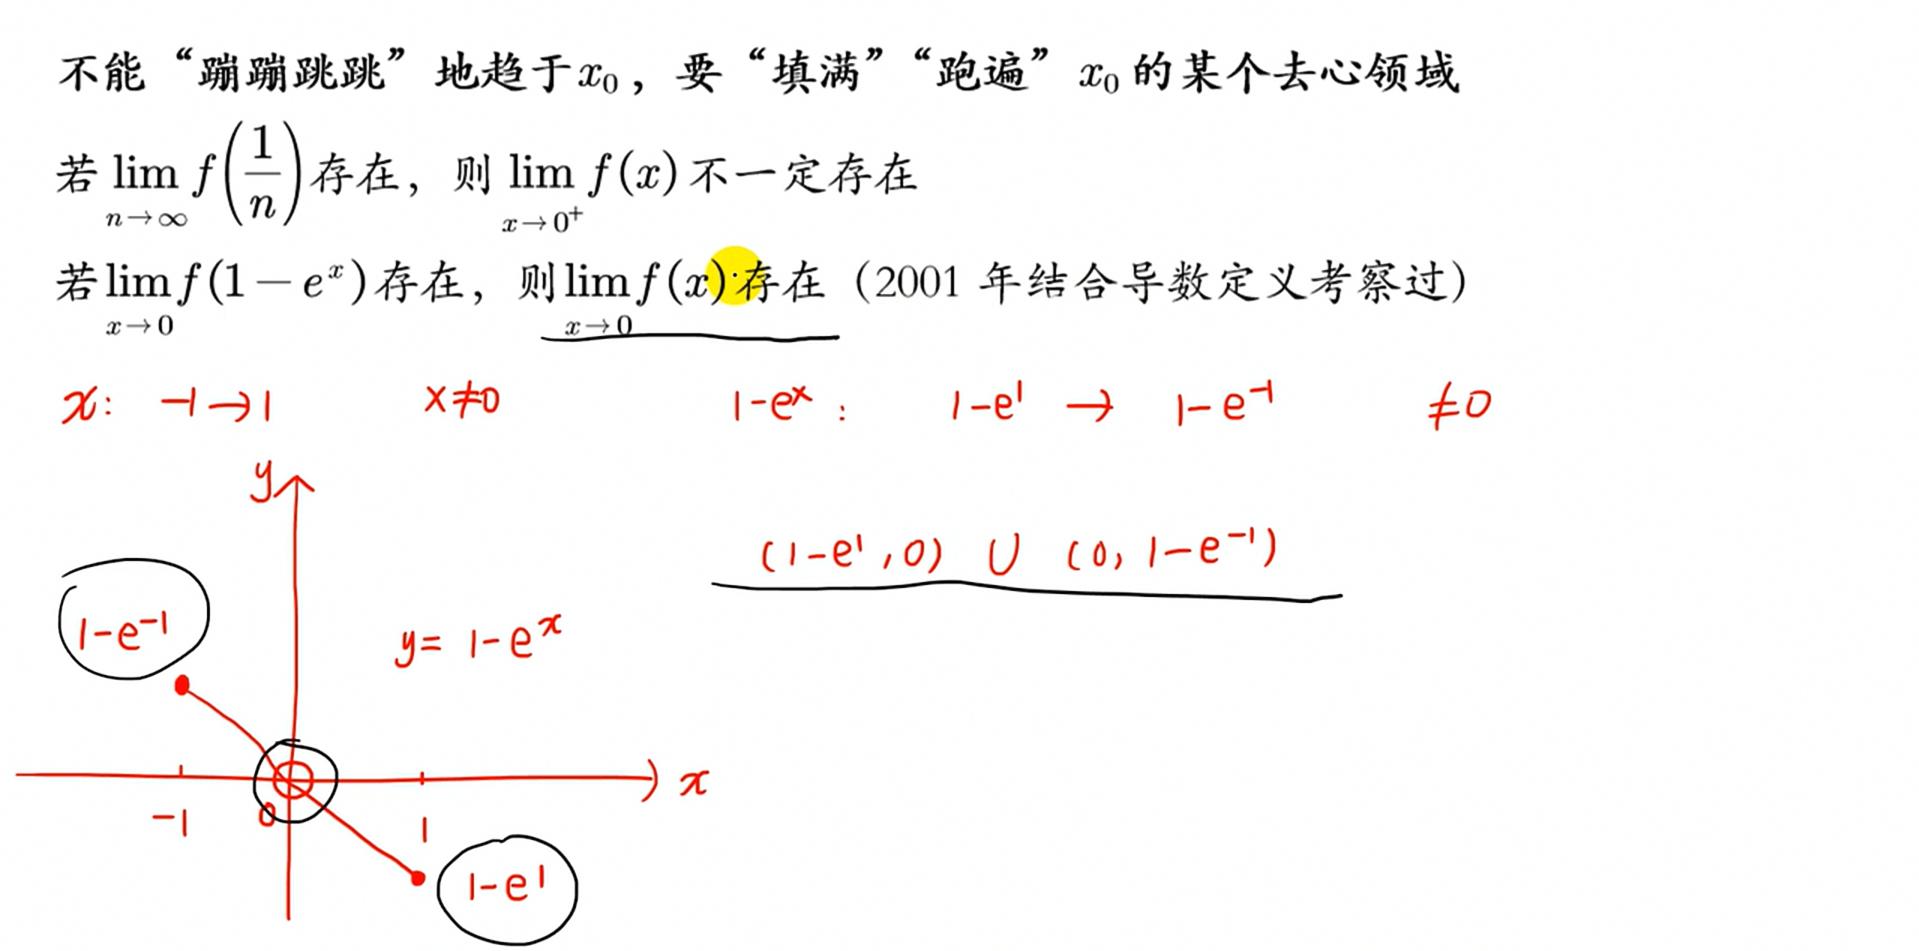 不能“蹦蹦跳跳”地趋于x₀，要“填满”“跑遍”x₀的某个去心领域
若 lim_{n→∞} f(1/n) 存在，则 lim_{x→0⁺} f(x) 不一定存在
若 lim_{x→0} f(1−eˣ) 存在，则 lim_{x→0} f(x) 存在（2001 年结合导数定义考察过）
x: −1→1 x≠0 1−eˣ: 1−e¹ → 1−e⁻¹ ≠0
y
(1−e¹,0) ∪ (0,1−e⁻¹)
1−e⁻¹ y=1−eˣ
x
−1 0 1
1−e¹